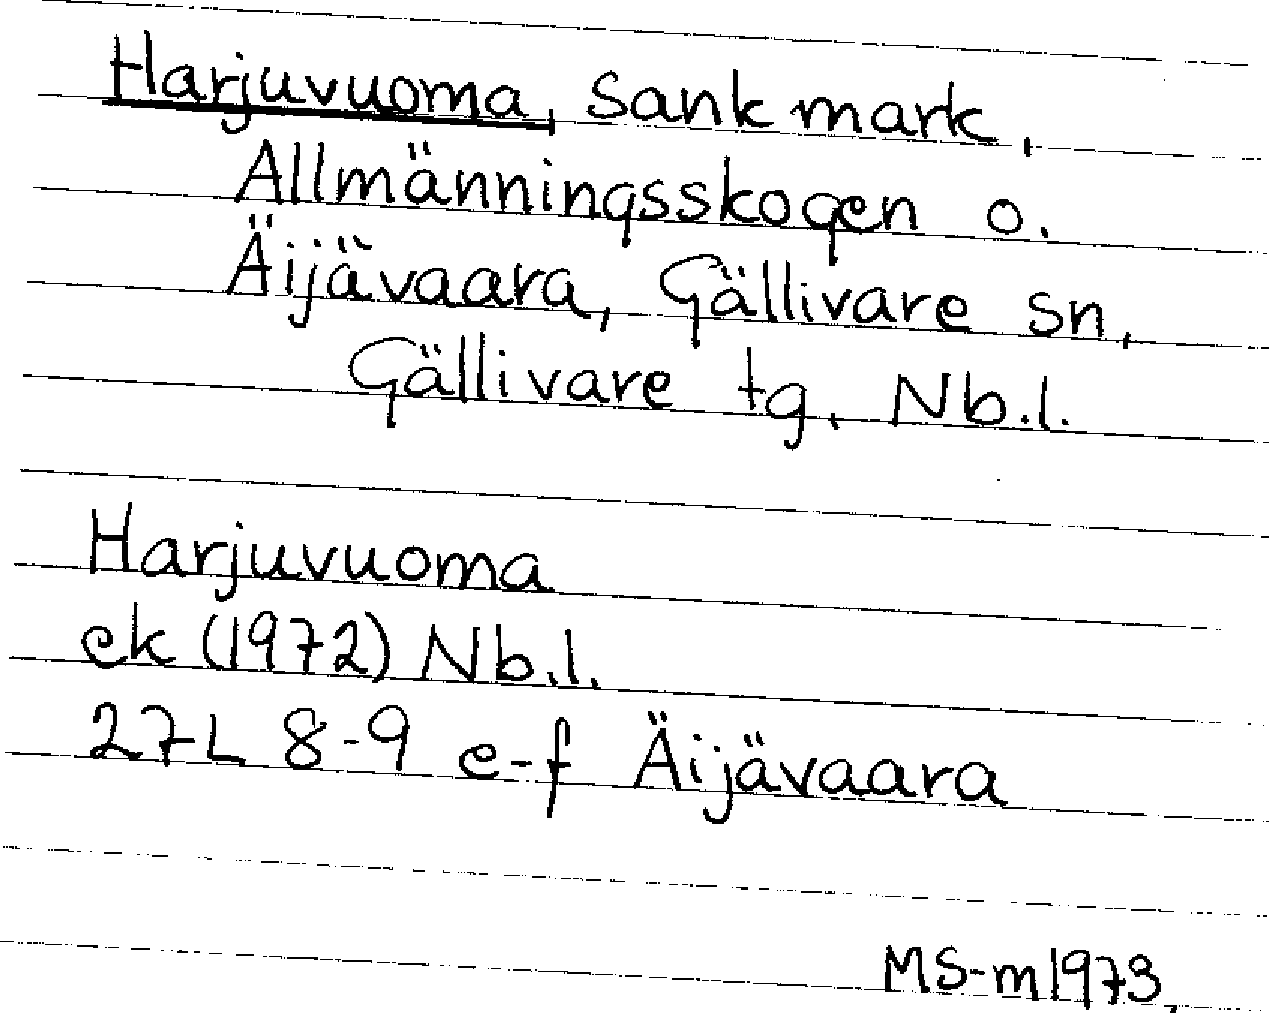 Harjuvuoma, Sank mark,
Allmänningsskogen o.
Äijävaara, Gällivare sn,
Gällivare tg, Nb.l.
Harjuvuoma
ek (1972) Nb.l.
27L 8-9 e-f Äijävaara
MS-m1973,